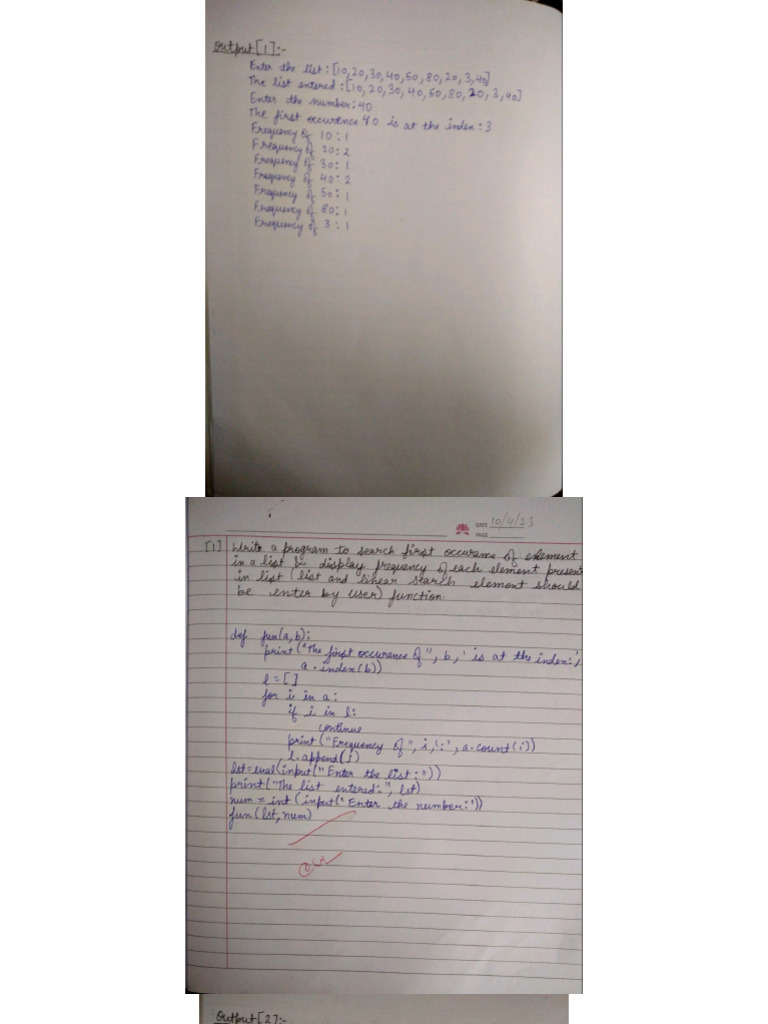 Output[1]:-
Enter the list:[10,20,30,40,50,80,20,3,40]
The list entered:[10,20,30,40,50,80,20,3,40]
Enter the number:40
The first occurence 40 is at the index:3
Frequency of 10:1
Frequency of 20:2
Frequency of 30:1
Frequency of 40:2
Frequency of 50:1
Frequency of 80:1
Frequency of 3:1
DATE 10/4/23
PAGE
[1] Write a program to search first occurence of element
in a list & display frequency of each element present
in list (list and linear search element should
be enter by user) function.
def fun(a,b):
print("The first occurence of", b, ' is at the index:',
a.index(b))
l=[]
for i in a:
if i in l:
continue
print("Frequency of", i,':', a.count(i))
l.append(i)
lst=eval(input("Enter the list:"))
print("The list entered:", lst)
num = int(input('Enter the number:'))
fun(lst,num)
Output[2]:-